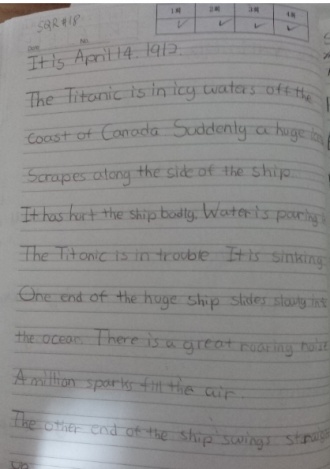 SQR #18
1회 2회 3회 4회
DATE NO.
It is April 14. 1912.
The Titanic is in icy waters off the
Coast of Canada Suddenly a huge
Scrapes along the side of the ship
It has hurt the ship badly. Water is pouring
The Titanic is in trouble It is sinking
One end of the huge ship slides slowly into
the ocean. There is a great roaring noise
A million sparks fill the air
The other end of the ship swings straight
up